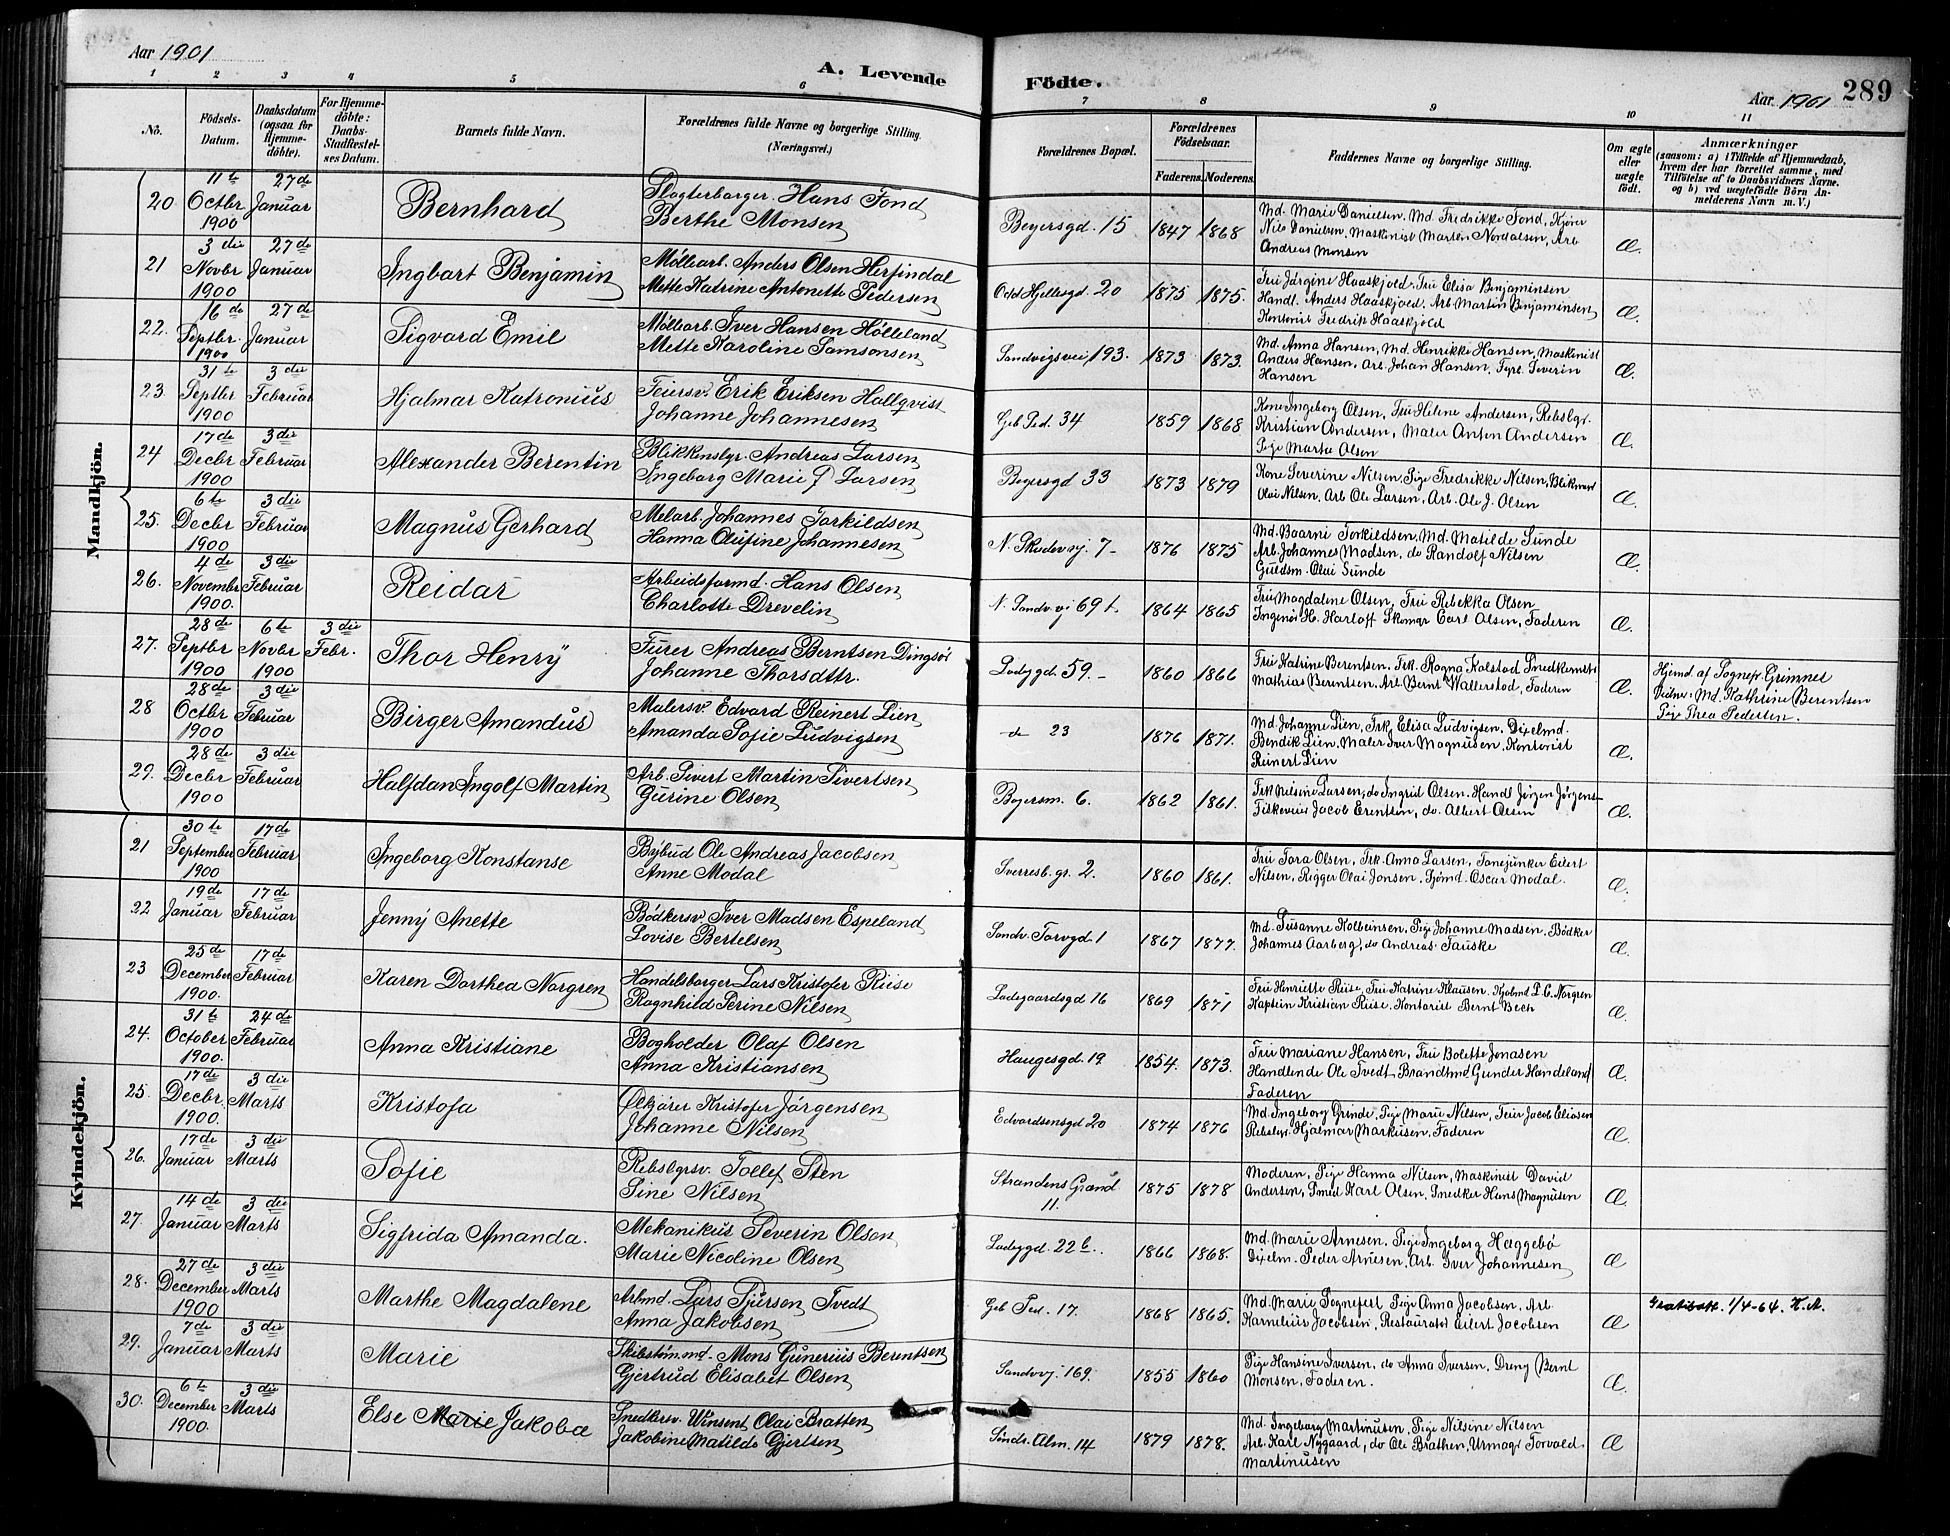 Aar 1901
A. Levende
Födte.
Aar 1901
289
1 2 3 4 5 6 7 8 9 10 11
No.
Födsels-
Datum.
Daabsdatum
(ogsaa for
Hjemme-
döbte).
For Hjemme-
döbte:
Daabs-
Stadfæstel-
ses Datum.
Barnets fulde Navn.
Forældrenes fulde Navne og borgerlige Stilling.
(Næringsvei.)
Forældrenes Bopæl.
Forældrenes
Födselsaar.
Faderens. Moderens.
Faddernes Navne og borgerlige Stilling.
Om ægte
eller
uægte
födt.
Anmærkninger
(saasom: a) i Tilfælde af Hjemmedaab,
hvem der har forrettet samme, med
Tilföielse af to Daabsvidners Navne,
og b) ved uægtefödte Börn An-
melderens Navn m. V.)
Mandkjön.
20 11te Octbr 1900 27de Januar Bernhard
Slagterborger. Hans Tond
Berthe Monsen
Beyersgd. 15 1847 1868
Md. Marie Danielsen, Md. Fredrikke Tond, Kjörer
Nils Danielsen, Maskinist Marten Nordalsen, Arb.
Andreas Monsen
Æ.
21 3die Novbr 1900 27de Januar Ingbart Benjamin
Møllearb. Anders Olsen Herfindal
Mette Katrine Antonette Pedersen
Odd Hjeltesgd. 20 1875 1875.
Fru Jørgine Haaskjold, Fru Elisa Benjaminsen
Handl. Anders Haaskjold, Arb. Martin Benjaminsen,
Kontorist Fredrik Haaskjold
Æ.
22. 16de Septbr. 1900 27de Januar Sigvard Emil
Møllearb. Iver Hansen Hølleland
Mette Karoline Samsonsen
Sandvigsvei 193. 1873 1873.
Md. Anna Hansen, Md. Henrikke Hansen, Maskinist
Anders Hansen, Arb. Johan Hansen, Fyrb. Severin
Hansen
Æ.
23. 31te Septbr 1900 3die Februar Hjalmar Katronius
Feiersv. Erik Eriksen Hallqvist
Johanne Johannesen
Geb Ped. 34 1859 1868
Kone Ingeborg Olsen, Fru Helene Andersen, Rebslgr.
Kristian Andersen, Maler Anton Andersen
Pige Marta Olsen
Æ.
24 17de Decbr 1900 3die Februar Alexander Berentin
Blikkenslgr. Andreas Larsen
Ingeborg Marie Larsen
Beyersgd 33 1873 1879
Kone Severine Nilsen, Pige Fredrikke Nilsen,
Olai Nilsen, Arb. Ole Larsen, Arb. Ole J. Olsen
Æ.
25. 6te Decbr 1900 3die Februar Magnus Gerhard
Johannes Torkildsen
Hanna Olufine Johannesen
7 1876 1875
Md. Torkildsen, Md. Matilde Sunde
Arb. Johannes Madsen, do Randolf Nilsen
Guldsm. Olai Sunde
Æ.
26. 4de November 1900. 3die Februar Reidar
Arbeidsformd. Hans Olsen
Charlotte Drevelin
N. Sandv.vj 69 1864 1865
Fru Magdalene Olsen, Fru Rebekka Olsen
Ingeniör H. Harloff Skomgr Carl Olsen, Faderen
Æ.
27. 28de Septbr 1900 6te Novbr 1900 3die Febr. Thor Henry
Furer Andreas Berntsen Dingsör
Johanne Thorsdttr.
Ladygd. 59. 1860 1866
Fru Katrine Berentsen, Frk. Ragna Kolstad
Mathias Berentsen, Arb. Bernt Wallerstad, Faderen
Æ.
Hjemd. af Sognepr. Grimnes
Vidner: Md. Kathrine Berentsen
Pige Thea Pedersen.
28 28de Octbr 1900 3die Februar Birger Amandus
Malersv. Edvard Reinert Lien
Amanda Sofie Ludvigsen
do 23 1876 1871.
Md. Johanne Lien, Frk. Elisa Ludvigsen, Dixelmd.
Bendik Lien, Maler Iver Magnusen, Kontorist
Reinert Lien
Æ.
29. 28de Decbr 1900 3die Februar Halfdan Ingolf Martin
Arb. Sivert Martin Sivertsen
Gurine Olsen
Beyersm. 6. 1862 1861.
Frk Nilsine Larsen, do Ingrid Olsen, Handl Jørgen
Jacob Erentsen, do. Albert Olsen
Æ.
Kvindekjön.
21 30te September 1900 17de Februar Ingeborg Konstanse
Bybud Ole Andreas Jacobsen
Anne Modal
Sverresb. gr. 2. 1860 1861.
Fru Tora Olsen, Frk. Anna Larsen, Eilert
Nilsen, Rigger Olai Jonsen, Sjömd. Oscar Modal.
Æ.
22 19de Januar 17de Februar Jenny Anette
Bödkersv. Iver Madsen Espeland
Lovise Bertelsen
Sandv. Torvgd. 1 1867 1877.
Md. Susanne Kolbeinsen, Pige Johanne Madsen, Bödker
Johannes Aarberg, do Andreas Fauske
Æ.
23 25de December 1900. 17de Februar Karen Dorthea Norgren
Handelsborger Lars Kristofer Riise
Ragnhild Serine Nilsen
Ladegaardsgd 16 1869 1871
Fru Henriette Riise, Fru Katrine Klausen, L. C. Norgren
Kaptein Kristian Riise, Kontorist Bernt Bech
Æ.
24. 31te October 1900. 24de Februar Anna Kristiane
Bogholder Olaf Olsen
Anna Kristiansen
Haugesgd. 19 1854. 1873.
Fru Mariane Hansen, Fru Bolette Jonasen
Handlende Ole Tvedt, Brandtmd Gunder Handeland
Faderen
Æ.
25. 17de Decbr. 1900. 3die Marts Kristofa
Ølkjører Kristofer Jørgensen
Johanne Nilsen
Edvardsensgd 20 1874 1876
Md. Ingeborg Grinde, Pige Marie Nilsen, Feier Jacob Eliasen
Rebslgr. Hjalmar Markusen, Faderen
Æ.
26. 17de Januar 3die Marts Sofie
Rebslgrsv. Tollef Sten
Sine Nilsen
Strandens Grænd 11. 1875 1878
Moderen, Pige Hanna Nilsen, Maskinist David
Andersen, Smed Karl Olsen, Snedker Hans Magnusen
Æ.
27. 14de Januar 3die Marts Sigfrida Amanda.
Mekanikus Severin Olsen
Marie Nicoline Olsen
Ladygd. 22b. 1866 1868.
Md. Marie Arnesen, Pige Ingeborg Hæggebø
Dixelm. Peder Arnesen, Arb. Iver Johannesen
Æ
28. 27de December 1900 3die Marts Marthe Magdalene
Arbmd. Lars Sjursen Tvedt
Anna Jakobsen
Geb Ped. 17. 1868 1865.
Md. Marie Sognefest Pige Anna Jacobsen, Arb.
Kornelius Jacobsen, Restauratör Eilert Jacobsen
Æ
Gratisatt. 1/4-64. K.A.
29. 7de Januar 3die Marts Marie
Skibstömmd. Mons Gunerius Berentsen
Gjertrud Elisabet Olsen
Sandvvj. 169. 1855 1860
Pige Hansine Iversen, do Anna Iversen, Dreng Bernt
Monsen, Faderen.
Æ.
30. 6te December 1900. 3die Marts Else Marie Jakoba
Snedkersv. Vinsent Olai Bratten
Jakobine Matilde Gjertsen
Søndr. Alm. 14 1879 1878.
Md. Ingeborg Martinusen, Pige Nilsine Nilsen
Arb. Karl Nygaard, do Ole Brathen, Urmagr Torvald
Martinusen
Æ